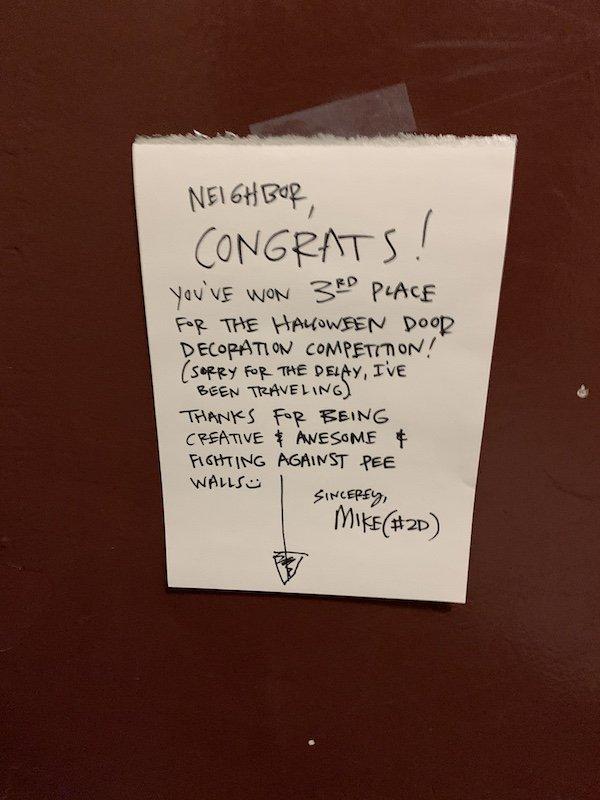 NEIGHBOR,
CONGRATS!
YOU'VE WON 3RD PLACE
FOR THE HALLOWEEN DOOR
DECORATION COMPETITION!
(SORRY FOR THE DELAY, I'VE
BEEN TRAVELING)
THANKS FOR BEING
CREATIVE & AWESOME &
FIGHTING AGAINST PEE
WALLS
SINCERELY,
MIKE(#2D)